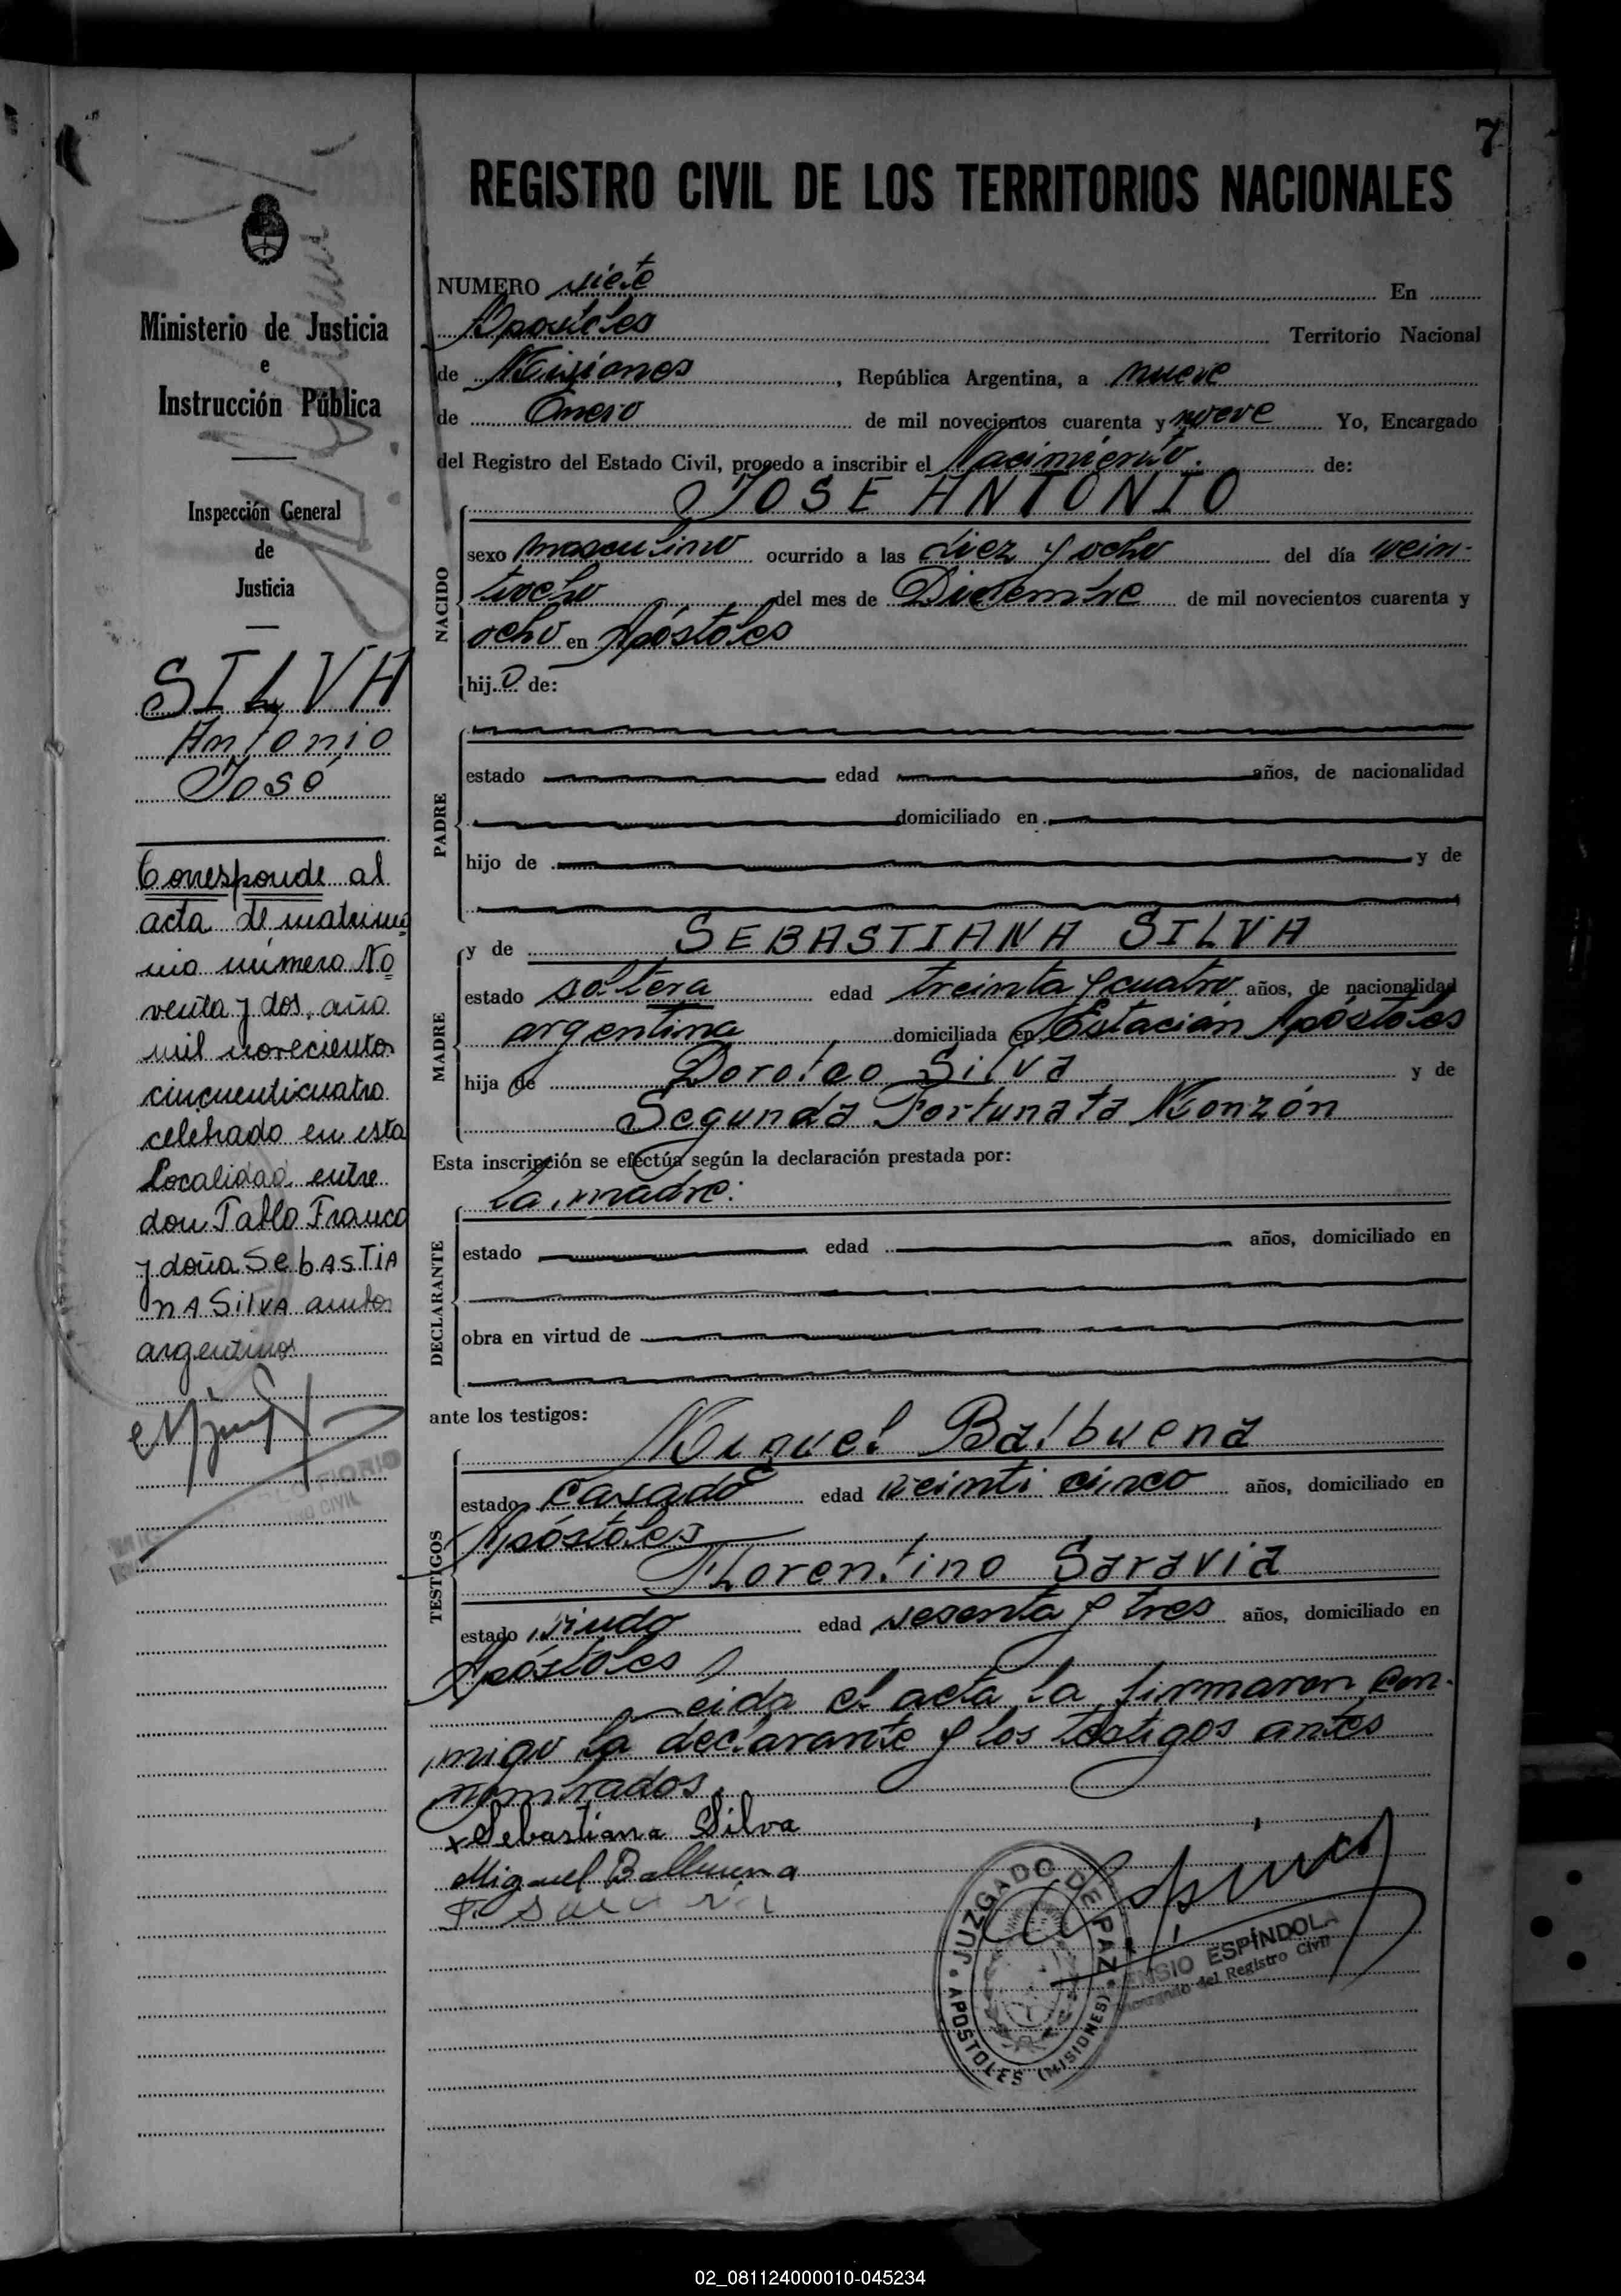 7
REGISTRO CIVIL DE LOS TERRITORIOS NACIONALES
Ministerio de Justicia
e
Instrucción Pública
Inspección General
de
Justicia
SILVA
Antonio
José
Corresponde al
acta de matrimo
nio número No
venta y dos, año
mil novecientos
cincuenticuatro
celebrado en esta
Localidad entre
don Pablo Franco
y doña SebASTIA
nA SilVA ambos
argentinos
NUMERO siete En
Apostoles Territorio Nacional
de Misiones, República Argentina, a nueve
de Enero de mil novecientos cuarenta y nueve Yo, Encargado
del Registro del Estado Civil, procedo a inscribir el Nacimiento. de:
JOSE ANTONIO
NACIDO
sexo masculino ocurrido a las diez y ocho del día vein-
tiocho del mes de Diciembre de mil novecientos cuarenta y
ocho en Apóstoles
hijo de:
PADRE
estado edad años, de nacionalidad
domiciliado en
hijo de y de
MADRE
y de SEBASTIANA SILVA
estado soltera edad treinta y cuatro años, de nacionalidad
argentina domiciliada en Estación Apóstoles
hija de Doroteo Silva y de
Segunda Fortunata Monzón
Esta inscripción se efectúa según la declaración prestada por:
la madre:
DECLARANTE
estado edad años, domiciliado en
obra en virtud de
ante los testigos:
TESTIGOS
Miguel Balbuena
estado Casado edad veinti cinco años, domiciliado en
Apóstoles
Florentino Saravia
estado viudo edad sesenta y tres años, domiciliado en
Apóstoles
Leida el acta la firmaron con-
migo la declarante y los testigos antes
nombrados.
x Sebastiana Silva
Miguel Balbuena
F. Saravia
JUZGADO DE PAZ
APOSTOLES (MISIONES)
ENSIO ESPÍNDOLA
Encargado del Registro Civil
02_081124000010-045234